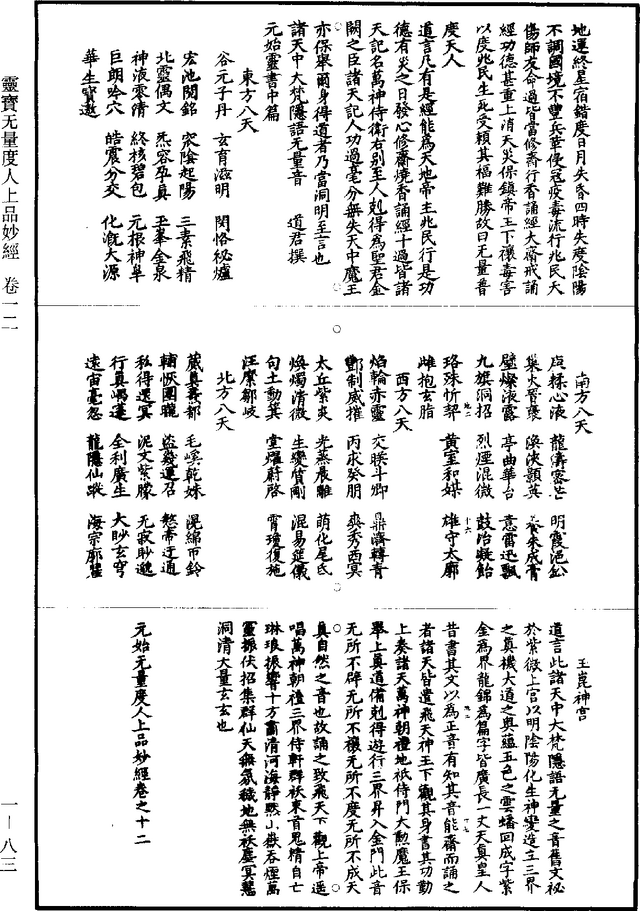 靈寶无量度人上品妙經　卷一二
一—八三
地運終星宿錯度日月失昏四時失度陰陽
不調國境不豐兵革侵冦疫毒流行兆民夭
傷師友命過皆當修齋行香誦經大齋戒誦
經功德甚重上消天災保鎮帝王下禳毒害
以度兆民生死受賴其福難勝故曰无量普
度天人
道言凡有是經能爲天地帝主兆民行是功
德有災之日發心修齋燒香誦經十過皆諸
天記名萬神侍衛右别至人剋得爲聖君金
闕之臣諸天記人功過毫分無失天中魔王
亦保舉爾身得道者乃當洞明至言也
諸天中大梵隱語无量音　道君撰
元始靈書中篇
東方八天
谷元子丹　玄育滋明　閔恪秘爐
宏池閔銘　突陰起陽　三素飛精
北靈偶文　炁容孕真　玉峯金泉
神液零清　終核碧包　元根神阜
巨朗吟穴　皓震分交　化溉大源
華生寶邀
南方八天
虛揉心液　龍濤密芒　明霞浥
集火晉褧　渙浹顥英　養朱成膏
壁燦液露　亭曲華台　意雷迅飄
九旗洞招　烈煙混微　鼓冶凝飴
珞珠忻契　黃室和媒　雄守太廓
雌抱玄脂
西方八天
焰輪赤靈　交映斗卿　鼎濟轉青
酆制威摧　丙求癸朋　爽秀西冥
太丘紫爽　光蒸晨離　萌化尾氐
煥燭清微　生變質剛　混易筵儀
句土動箕　堂耀蔚啓　霄瓊復施
汪縻鄒岐
北方八天
藏真義都　毛嵠乾妹　混綿帀鈴
輔恢團隴　盜㡬運召　煞帝迂通
私得選冥　泥文紫朦　无寂眇邈
行真嵎蓬　全利廣生　大眇玄穹
遠宙毫忽　龍隱仙蹤　海宗廓
王崑神宫
道言此諸天中大梵隱語无量之音舊文秘
於紫微上宫以明陰陽化生神變造立三界
之真機大道之奥藴五色之雲蟠回成字紫
金爲界龍錦爲篇字皆廣長一丈天真皇人
昔書其文以爲正音有知其音能齋而誦之
者諸天皆遣飛天神王下觀其身書其功勤
上奏諸天萬神朝禮地祇侍門大勳魔王保
舉上真道備剋得遊行三界昇入金門此音
无所不辟无所不禳无所不度无所不成天
真自然之音也故誦之致飛天下觀上帝遥
唱萬神朝禮三界侍軒群袄束首鬼精自亡
琳琅振響十方肅清河海静默山嶽吞煙萬
靈振伏招集群仙天無氛穢地無袄塵冥慧
洞清大量玄玄也
元始无量度人上品妙經卷之十二